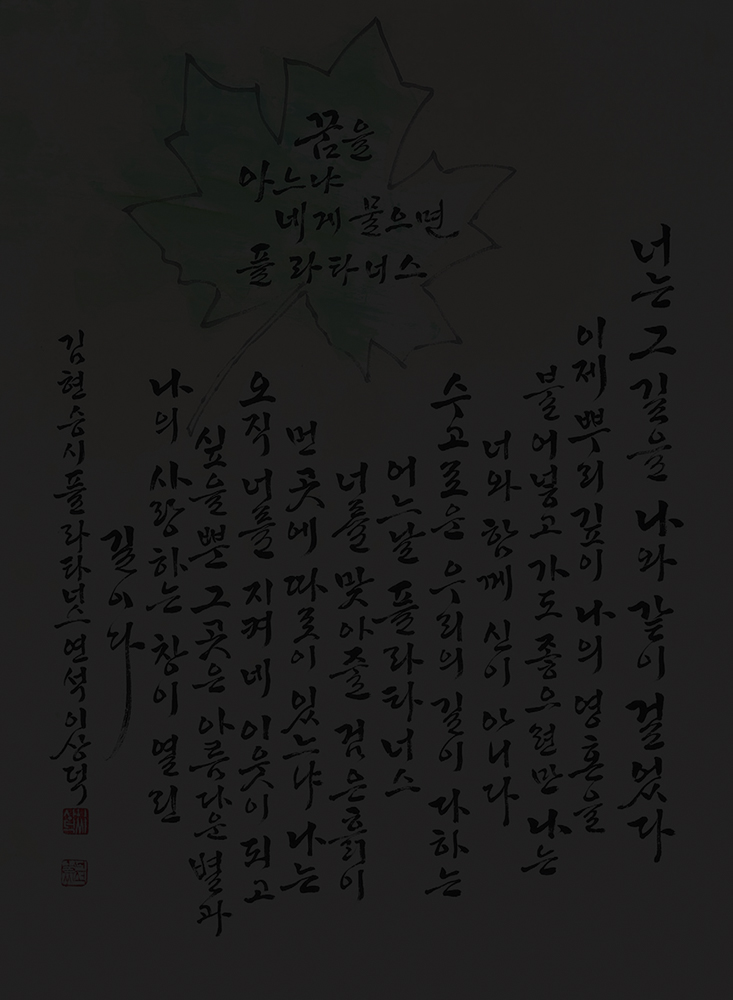 꿈을
아느냐
네게 물으면
플라타너스
너는 그 길을 나와 같이 걸었다
이제 뿌리 깊이 나의 영혼을
불어넣고 가도 좋으련만 나는
너와 함께 신이 아니다
수고로운 우리의 길이 다하는
어느날 플라타너스
너를 맞아줄 검은 흙이
먼 곳에 따로이 있느냐 나는
오직 너를 지켜 네 이웃이 되고
싶을 뿐 그곳은 아름다운 별과
나의 사랑하는 창이 열린
길이다
김현승 시 플라타너스 연석 이상덕